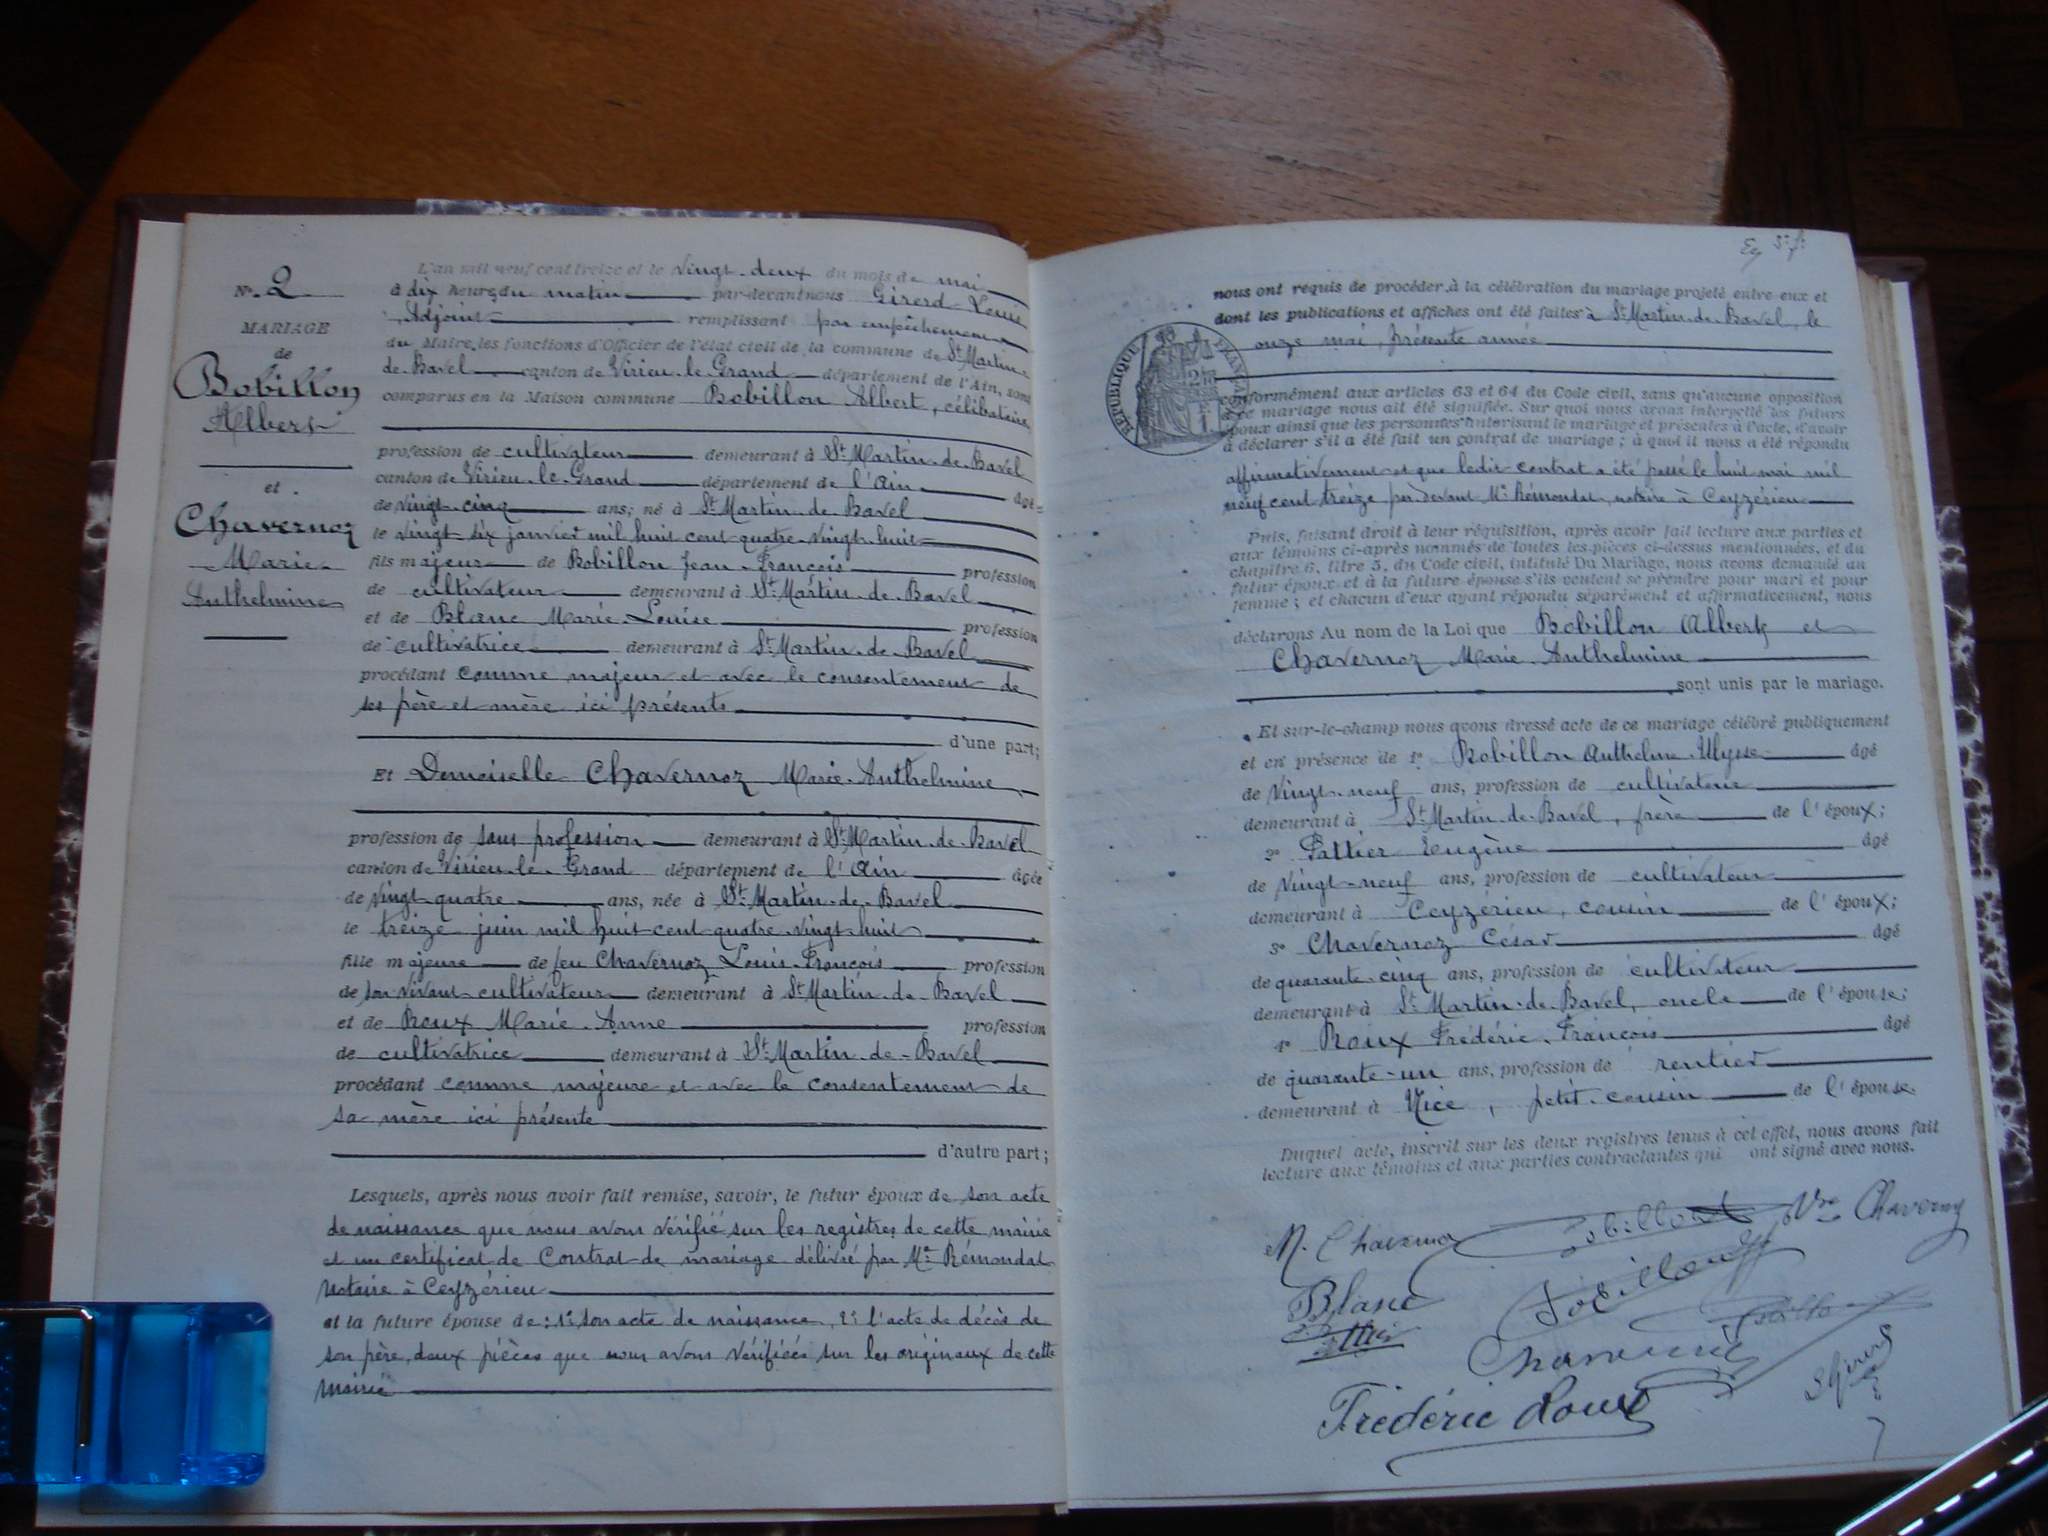 N° 2
MARIAGE
de
Bobillon
Albert
et
Chavernoz
Marie
Anthelmine
L'an mil neuf cent treize et le vingt-deux du mois de mai
à dix heures du matin par-devant nous Girerd Louis
Adjoint remplissant par empêchement
du Maire, les fonctions d'Officier de l'état civil de la commune de St Martin-
de-Bavel canton de Virieu-le-Grand département de l'Ain, sont
comparus en la Maison commune Bobillon Albert, célibataire
profession de cultivateur demeurant à St Martin-de-Bavel
canton de Virieu-le-Grand département de l'Ain âgé
de vingt-cinq ans; né à St Martin-de-Bavel
le vingt-six janvier mil huit cent quatre-vingt-huit
fils majeur de Bobillon Jean-François profession
de cultivateur demeurant à St Martin-de-Bavel
et de Blanc Marie-Louise profession
de cultivatrice demeurant à St Martin-de-Bavel
procédant comme majeur et avec le consentement de
ses père et mère ici présents
d'une part;
Et Demoiselle Chavernoz Marie-Anthelmine
profession de sans profession demeurant à St Martin-de-Bavel
canton de Virieu-le-Grand département de l'Ain âgée
de vingt-quatre ans, née à St Martin-de-Bavel
le treize juin mil huit cent quatre-vingt-huit
fille majeure de feu Chavernoz Louis-François profession
de son vivant cultivateur demeurant à St Martin-de-Bavel
et de Roux Marie-Anne profession
de cultivatrice demeurant à St Martin-de-Bavel
procédant comme majeure et avec le consentement de
sa mère ici présente
d'autre part;
Lesquels, après nous avoir fait remise, savoir, le futur époux de son acte
de naissance que nous avons vérifié sur les registres de cette mairie
et un certificat de Contrat de mariage délivré par Me Rémondat
Notaire à Ceyzérieu
et la future épouse de: 1° son acte de naissance, 2° l'acte de décès de
son père, deux pièces que nous avons vérifiées sur les originaux de cette
Mairie
nous ont requis de procéder à la célébration du mariage projeté entre eux et
dont les publications et affiches ont été faites à St Martin-de-Bavel, le
onze mai, présente année
RÉPUBLIQUE FRANÇAISE
conformément aux articles 63 et 64 du Code civil, sans qu'aucune opposition
à ce mariage nous ait été signifiée. Sur quoi nous avons interpellé les futurs
époux ainsi que les personnes autorisant le mariage et présentes à l'acte, d'avoir
à déclarer s'il a été fait un contrat de mariage; à quoi il nous a été répondu
affirmativement et que ledit contrat a été passé le huit mai mil
neuf cent treize par-devant Me Rémondat, notaire à Ceyzérieu
Puis, faisant droit à leur réquisition, après avoir fait lecture aux parties et
aux témoins ci-après nommés de toutes les pièces ci-dessus mentionnées, et du
chapitre 6, titre 5, du Code civil, intitulé Du Mariage, nous avons demandé au
futur époux et à la future épouse s'ils veulent se prendre pour mari et pour
femme; et chacun d'eux ayant répondu séparément et affirmativement, nous
déclarons Au nom de la Loi que Bobillon Albert et
Chavernoz Marie-Anthelmine
sont unis par le mariage.
Et sur-le-champ nous avons dressé acte de ce mariage célébré publiquement
et en présence de 1° Bobillon Anthelme-Ulysse âgé
de vingt-neuf ans, profession de cultivateur
demeurant à St Martin-de-Bavel, frère de l'époux;
2° Pattier Eugène âgé
de vingt-neuf ans, profession de cultivateur
demeurant à Ceyzérieu, cousin de l'époux;
3° Chavernoz César âgé
de quarante-cinq ans, profession de cultivateur
demeurant à St Martin-de-Bavel, oncle de l'épouse;
4° Roux Frédéric-François âgé
de quarante-un ans, profession de rentier
demeurant à Nice, petit-cousin de l'épouse.
Duquel acte, inscrit sur les deux registres tenus à cet effet, nous avons fait
lecture aux témoins et aux parties contractantes qui ont signé avec nous.
M. Chavernoz Bobillon Vve Chavernoz
Blanc Bobillon
Chavernoz
Frédéric Roux